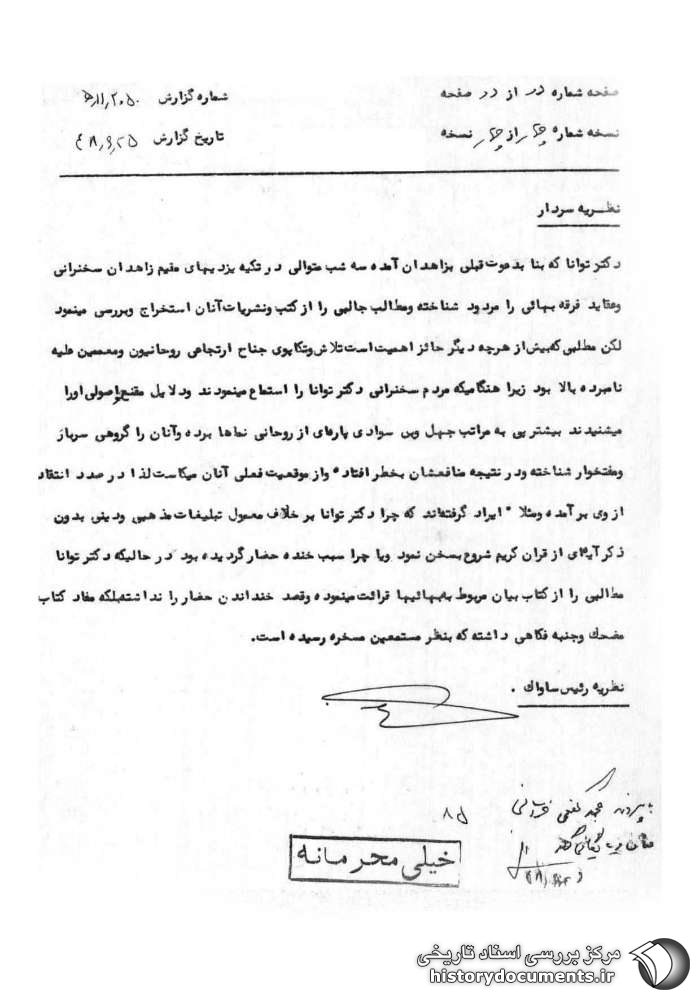 صفحه شماره دو از دو صفحه
شماره گزارش ۵/۱۱٫۳۰۵۰
نسخه شماره چهار از چهار نسخه
تاریخ گزارش ۴۸٫۹٫۲۵
نظریه سردار
دکتر توانا که بنا بدعوت قبلی بزاهدان آمده سه شب متوالی در تکیه یزدیهای مقیم زاهدان سخنرانی
وعقاید فرقه بهائی را مردود شناخته ومطالب جالبی را از کتب ونشریات آنان استخراج وبررسی مینمود
لکن مطلبی که بیش از هرچه دیگر حائز اهمیت است تلاش وتکاپوی جناح ارتجاعی روحانیون ومعممین علیه
نامبرده بالا بود زیرا هنگامیکه مردم سخنرانی دکتر توانا را استماع مینمودند ودلایل مقنع واصولی اورا
میشنیدند بیشتر پی به مراتب جهل وبی سوادی پاره‌ای از روحانی نماها برده وآنان را گروهی سربار
ومفتخوار شناخته ودر نتیجه منافعشان بخطر افتاده وازموقعیت فعلی آنان میکاست لذا در صدد انتقاد
از وی برآمده ومثلا" ایراد گرفته‌اند که چرا دکتر توانا بر خلاف معمول تبلیغات مذهبی ودینی بدون
ذکر آیه‌ای از قران کریم شروع بسخن نمود ویا چرا سبب خنده حضار گردیده بود در حالیکه دکتر توانا
مطالبی را از کتاب بیان مربوط به‌بهائیها قرائت مینموده وقصد خنداندن حضار را نداشته‌بلکه مفاد کتاب
مضحک وجنبه فکاهی داشته که بنظر مستمعین مسخره رسیده است.
نظریه رئیس ساواک .
۸۵
خیلی محرمانه
مرکز بررسی اسناد تاریخی
historydocuments.ir